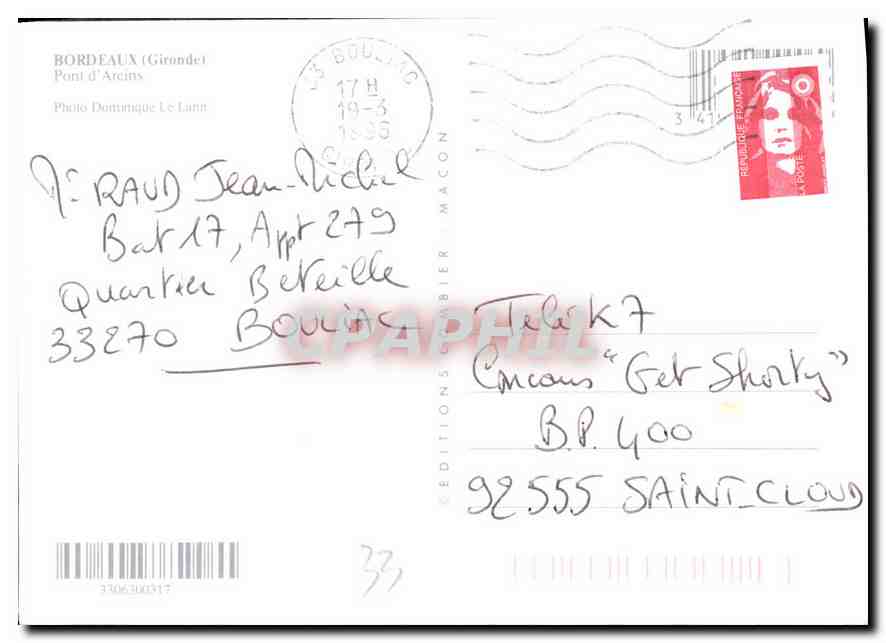 BORDEAUX (Gironde)
Pont d'Arcins
Photo Dominique Le Lann
33 BOULIAC
17 H
19-3
1996
Mr RAUD Jean-Michel
Bat 17, Appt 279
Quartier Beteille
33270 BOULIAC
© EDITIONS COMBIER - MACON
3 41
RÉPUBLIQUE FRANÇAISE
LA POSTE
CPAPHIL
Télé K7
Concours "Get Shorty"
B.P. 400
92555 SAINT-CLOUD
3306300317
33